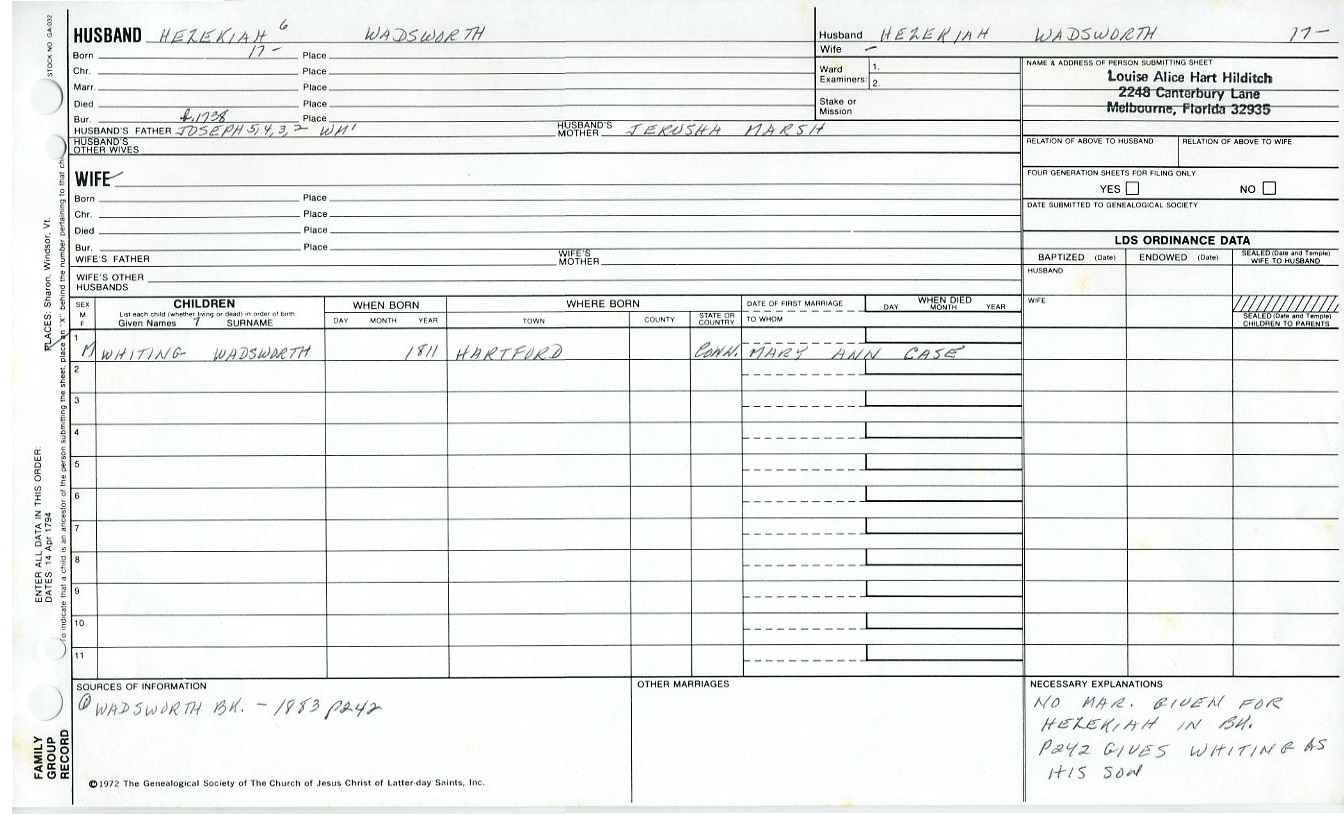 HUSBAND HEZEKIAH 6 WADSWORTH
Born 17- Place
Chr. Place
Marr. Place
Died Place
Bur. Place
b.1738
HUSBAND'S FATHER JOSEPH 5,4,3,2 WM' HUSBAND'S MOTHER JERUSHA MARSH
HUSBAND'S OTHER WIVES
Husband HEZEKIAH WADSWORTH 17-
Wife -
Ward Examiners: 1.
2.
Stake or Mission
NAME & ADDRESS OF PERSON SUBMITTING SHEET
Louise Alice Hart Hilditch
2248 Canterbury Lane
Melbourne, Florida 32935
RELATION OF ABOVE TO HUSBAND RELATION OF ABOVE TO WIFE
FOUR GENERATION SHEETS FOR FILING ONLY
YES NO
DATE SUBMITTED TO GENEALOGICAL SOCIETY
WIFE
Born Place
Chr. Place
Died Place
Bur. Place
WIFE'S FATHER WIFE'S MOTHER
WIFE'S OTHER HUSBANDS
LDS ORDINANCE DATA
BAPTIZED (Date) ENDOWED (Date) SEALED (Date and Temple) WIFE TO HUSBAND
HUSBAND
WIFE
SEALED (Date and Temple) CHILDREN TO PARENTS
SEX M F
CHILDREN
List each child (whether living or dead) in order of birth
Given Names 7 SURNAME
WHEN BORN
DAY MONTH YEAR
WHERE BORN
TOWN COUNTY STATE OR COUNTRY
DATE OF FIRST MARRIAGE
TO WHOM
WHEN DIED
DAY MONTH YEAR
1 M WHITING WADSWORTH 1811 HARTFORD CONN. MARY ANN CASE
2
3
4
5
6
7
8
9
10
11
SOURCES OF INFORMATION
① WADSWORTH BK. - 1883 P242
OTHER MARRIAGES
NECESSARY EXPLANATIONS
NO MAR. GIVEN FOR
HEZEKIAH IN BK.
P242 GIVES WHITING AS
HIS SON
©1972 The Genealogical Society of The Church of Jesus Christ of Latter-day Saints, Inc.
STOCK NO. GA-032
PLACES: Sharon, Windsor, Vt.
ENTER ALL DATA IN THIS ORDER:
DATES: 14 Apr 1794
To indicate that a child is an ancestor of the person submitting the sheet, place an "X" behind the number pertaining to that
FAMILY
GROUP
RECORD